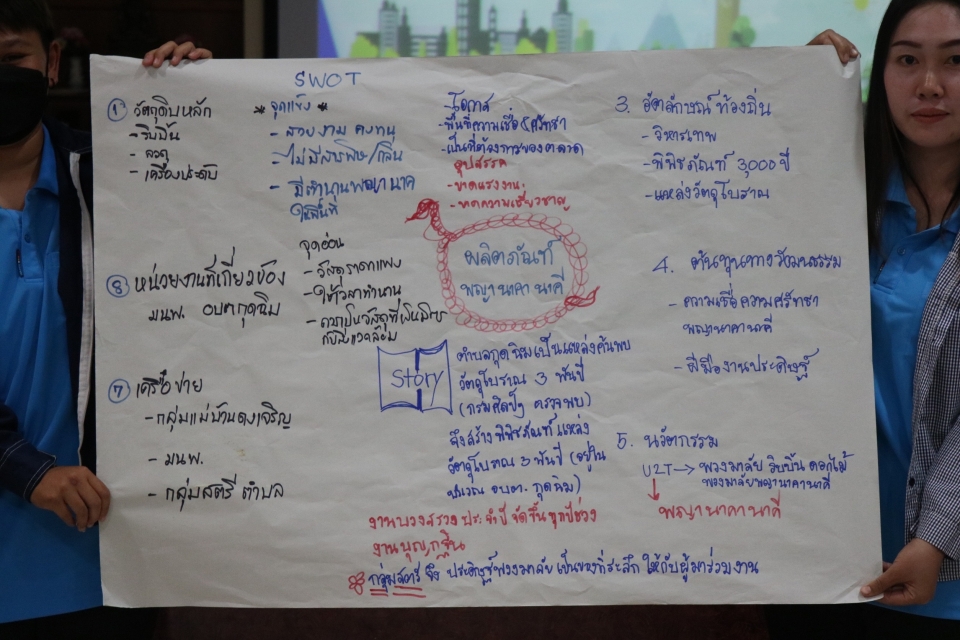 SWOT
① วัตถุดิบหลัก
- ริบบิ้น
- ลวด
- เครื่องประดับ
* จุดแข็ง *
- สวยงาม คงทน
- ไม่มีสารพิษ/กลิ่น
- มีตำนานพญานาค
ในพื้นที่
- โอกาส
- พื้นที่ความเชื่อ & ศรัทธา
- เป็นที่ต้องการของตลาด
อุปสรรค
- ขาดแรงงาน
- ขาดความเชี่ยวชาญ
3. อัตลักษณ์ ท้องถิ่น
- วิหารเทพ
- พิพิธภัณฑ์ 3,000 ปี
- แหล่งวัตถุโบราณ
⑧ หน่วยงานที่เกี่ยวข้อง
มนพ. อบต กุดฉิม
จุดอ่อน
- วัสดุราคาแพง
- ใช้เวลาทำนาน
ผลิตภัณฑ์
พญานาคา นาคี
4. ต้นทุนทางวัฒนธรรม
- ความเชื่อความศรัทธา
พญานาคา นาคี
- ฝีมืองานประดิษฐ์
⑦ เครือข่าย
- กลุ่มแม่บ้านดงเจริญ
- มนพ.
- กลุ่มสตรี ตำบล
Story
ตำบลกุดฉิมเป็นแหล่งค้นพบ
วัตถุโบราณ 3 พันปี
(กรมศิลป์ฯ ตรวจพบ)
จึงสร้างพิพิธภัณฑ์ แหล่ง
วัตถุโบราณ 3 พันปี (อยู่ใน
บริเวณ อบต. กุดฉิม)
งานบวงสรวง ประจำปี จัดขึ้นทุกปีช่วง
งานบุญกฐิน
กลุ่มสตรี จึง ประดิษฐ์พวงมาลัย เป็นของที่ระลึก ให้กับผู้มาร่วมงาน
5. นวัตกรรม
U2T → พวงมาลัย ริบบิ้น ดอกไม้
พวงมาลัยพญานาคา นาคี
พญานาคา นาคี